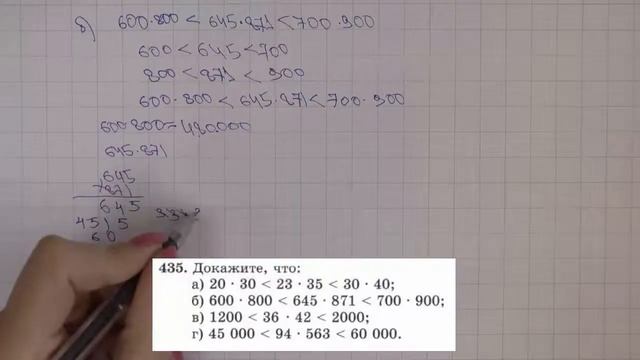 б) 600·800 < 645·871 < 700·900
600 < 645 < 700
800 < 871 < 900
600·800 < 645·871 < 700·900
600·800=480000
645·871
645
×871
645
4515
60
435. Докажите, что:
а) 20 · 30 < 23 · 35 < 30 · 40;
б) 600 · 800 < 645 · 871 < 700 · 900;
в) 1200 < 36 · 42 < 2000;
г) 45 000 < 94 · 563 < 60 000.